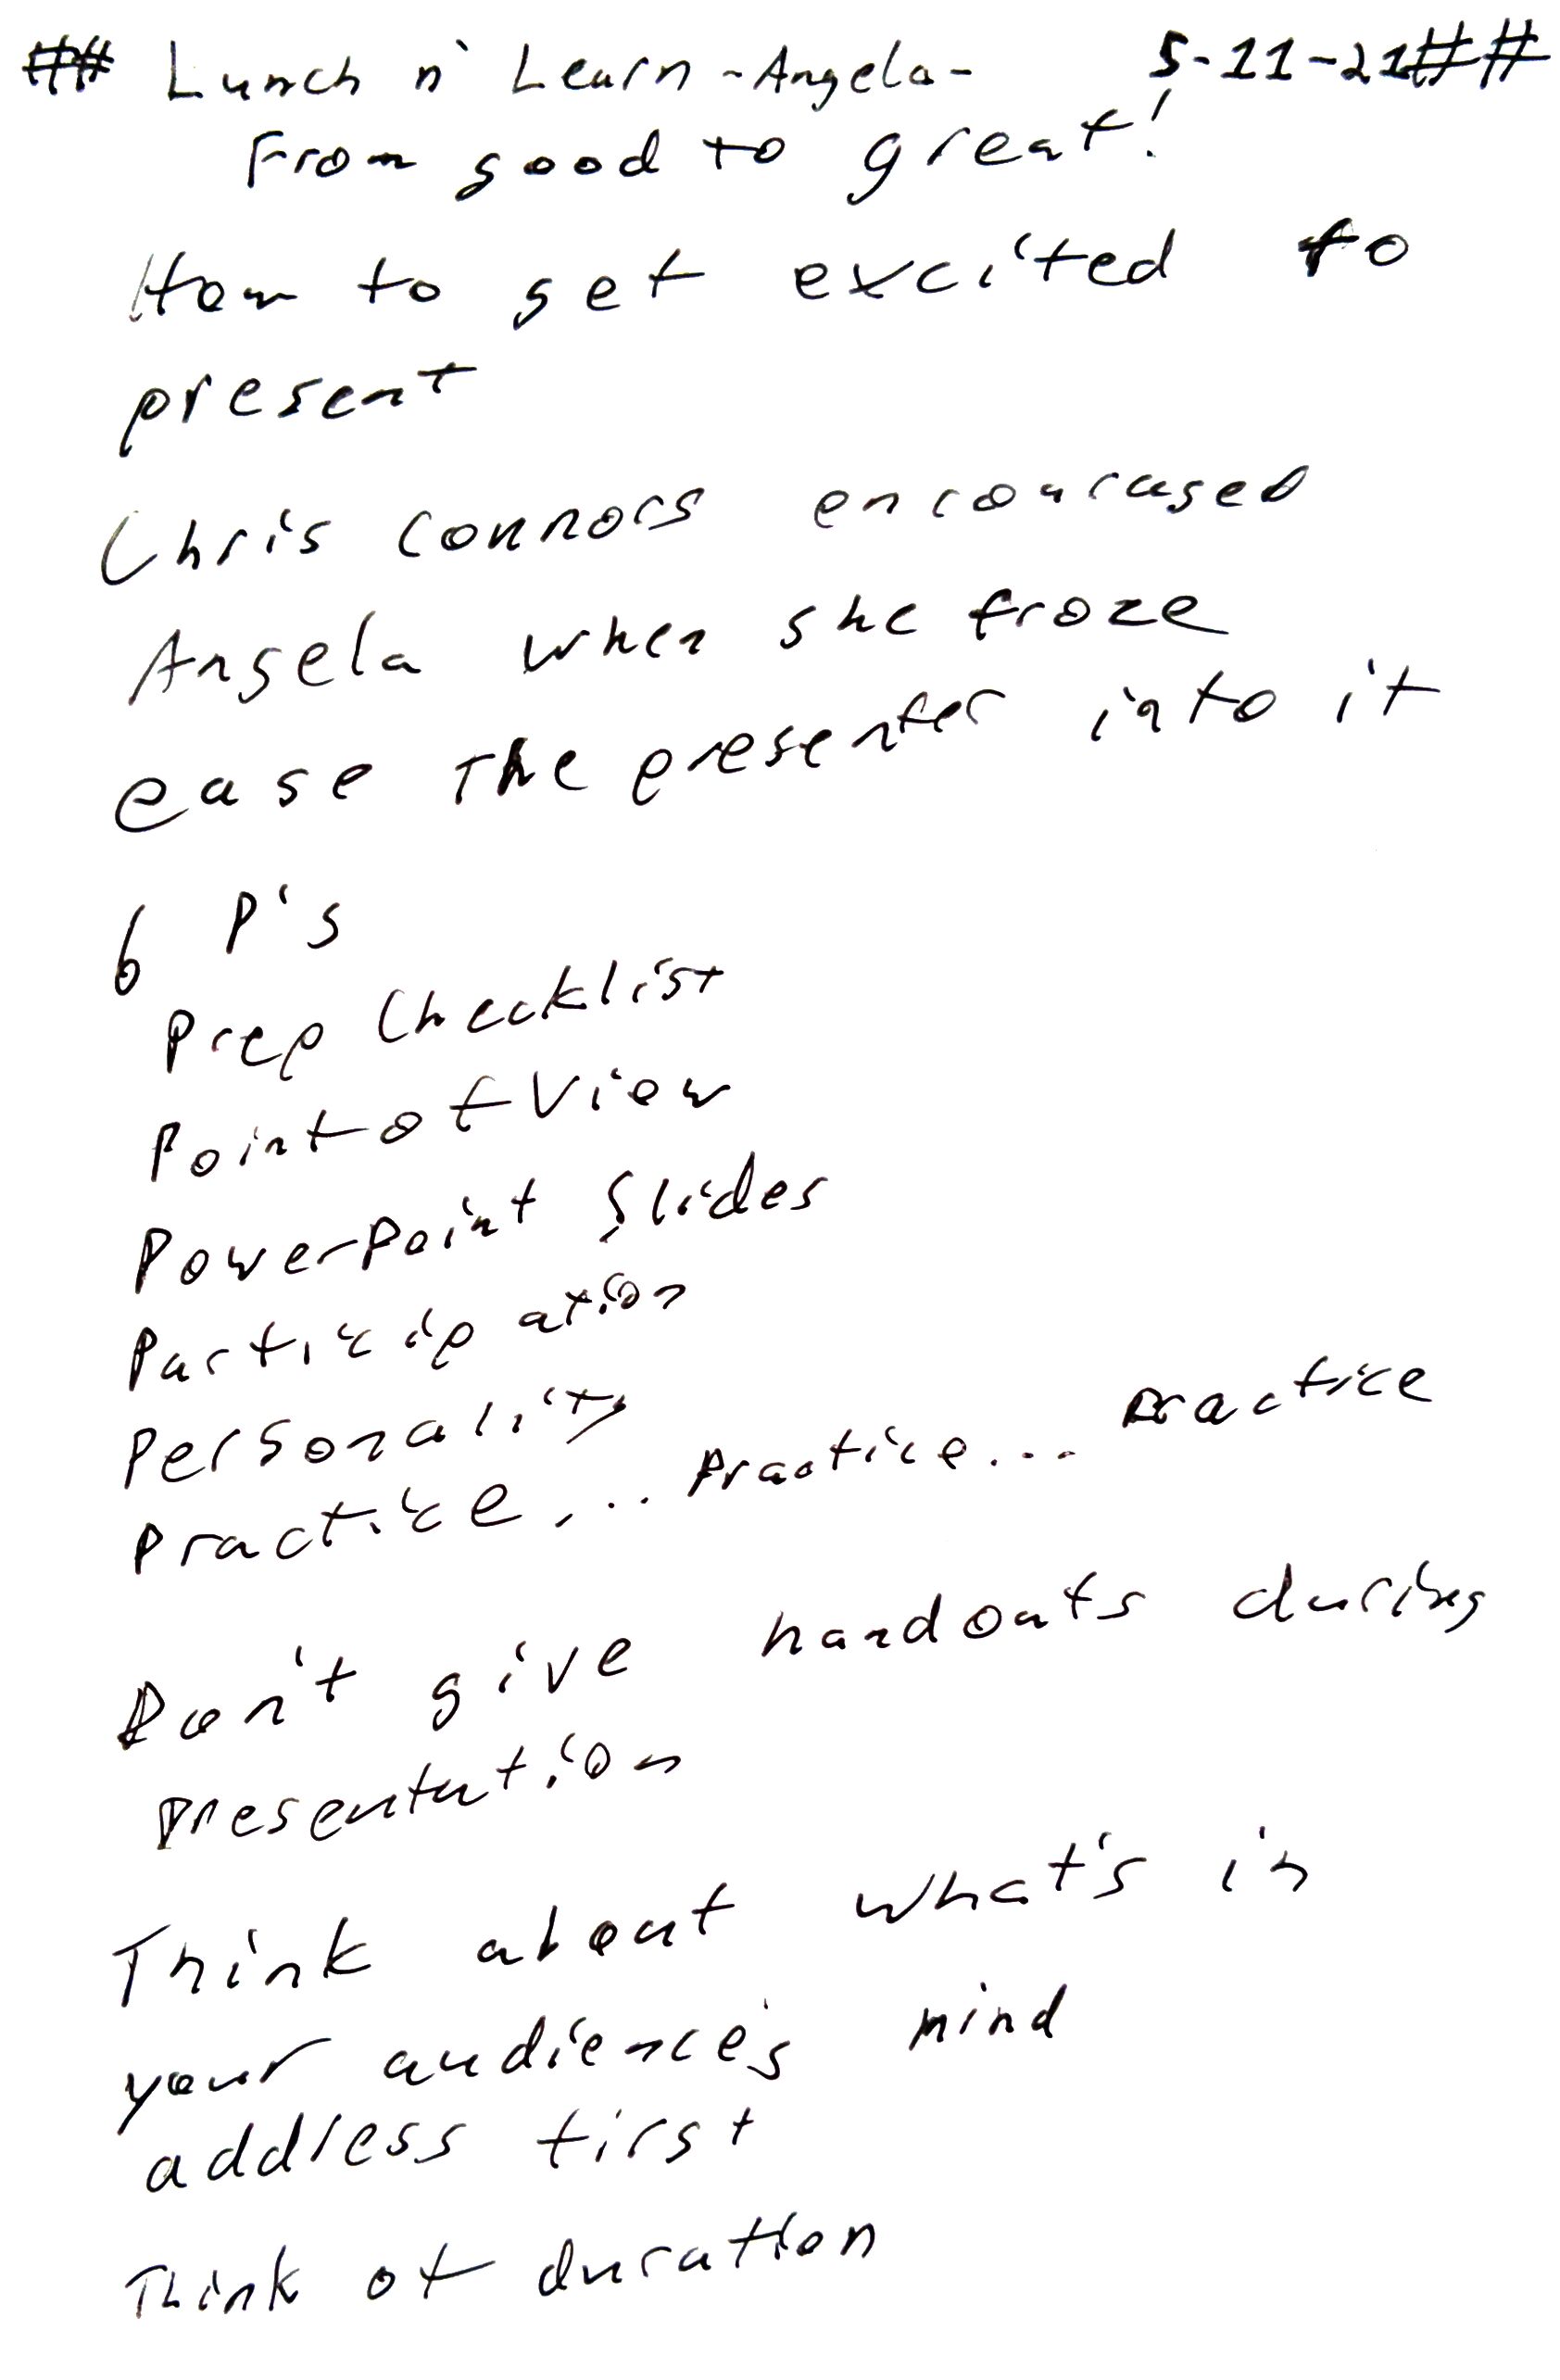 ## Lunch n' Learn -Angela- 5-11-21##
From good to great!
How to get excited to
present
Chris Connors encouraged
Angela when she froze
ease The presenter into it
6 P's
Prep Checklist
Point of View
PowerPoint Slides
Participation
Personality
Practice... Practice... Practice
Don't give handouts during
Presentation
Think about what's in
your audience's mind
address first
Think of duration